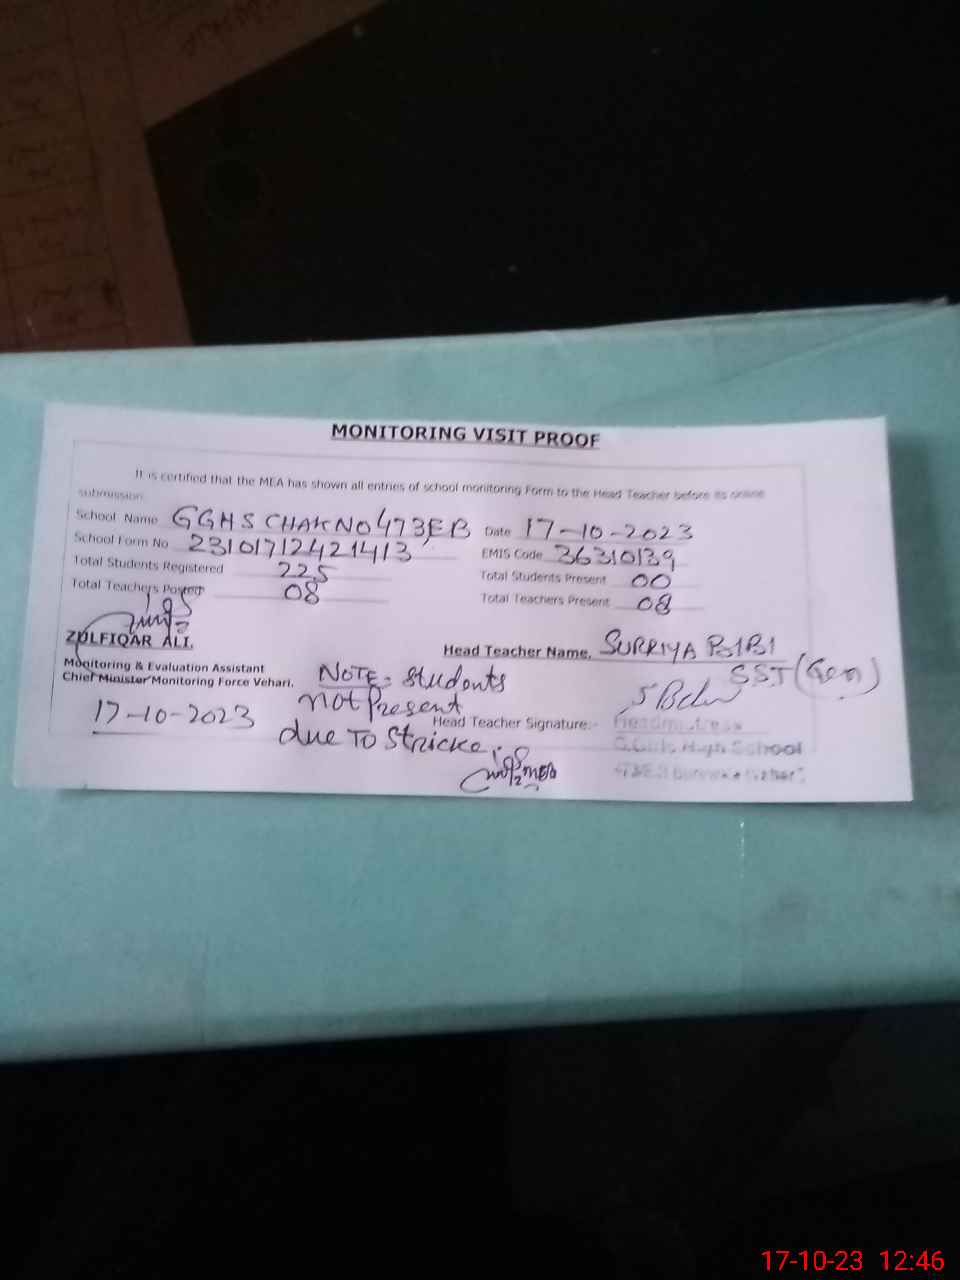 MONITORING VISIT PROOF
It is certified that the MEA has shown all entries of school monitoring Form to the Head Teacher before its online
submission
School Name GGHS CHAK NO 473EB Date 17-10-2023
School Form No 23101712421413 EMIS Code 36310139
Total Students Registered 225 Total Students Present 00
Total Teachers Posted 08 Total Teachers Present 08
ZULFIQAR ALI.
Head Teacher Name. SURRIYA BIBI
SST (Gen)
Monitoring & Evaluation Assistant
Chief Minister Monitoring Force Vehari.
NOTE= Students
not Present
due To Stricke.
17-10-2023
Head Teacher Signature:-
Headmistress
G.Girls High School
MEA
17-10-23 12:46